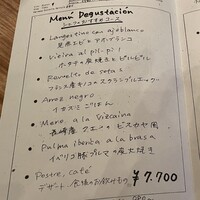 Menú Degustación
シェフのおすすめコース
Langostino con ajoblanco
足赤エビとアホブランコ
Vieira al pil-pil
ホタテの炭焼きとピルピル
Revuelto de setas
フランス産キノコのスクランブルエッグ
Arroz negro
イカスミごはん
Mero a la viscaina
長崎産クエのビスカヤ風
Pluma ibérica a la brasa
イベリコ豚プルマの炭火焼き
Postre, café
デザート 食後のお飲みもの ¥7.700